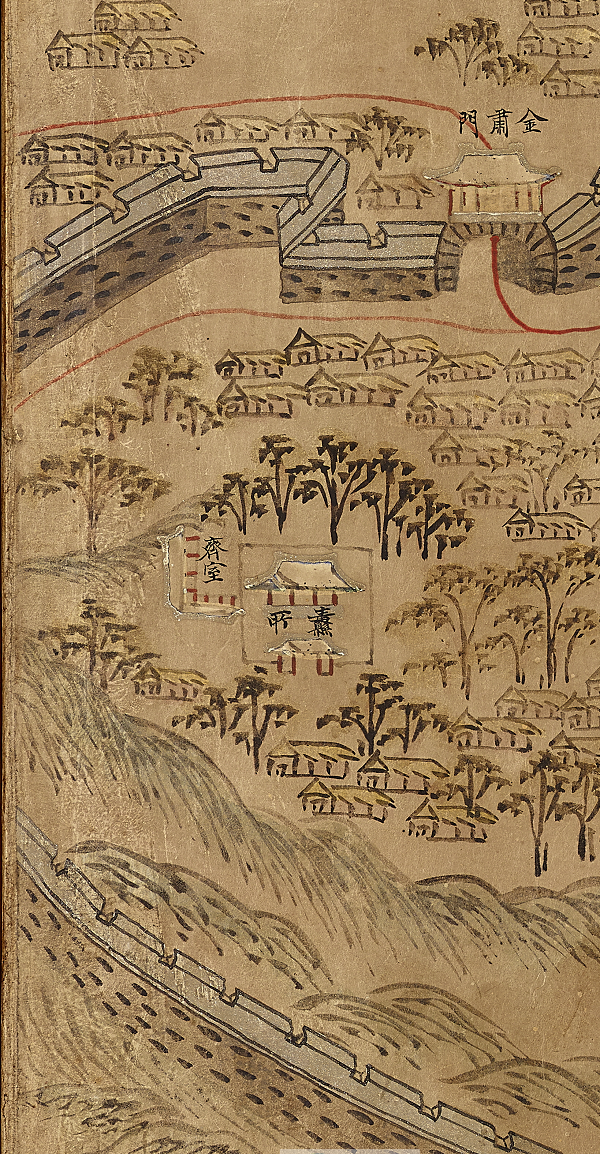 金肅門
齊室
纛所